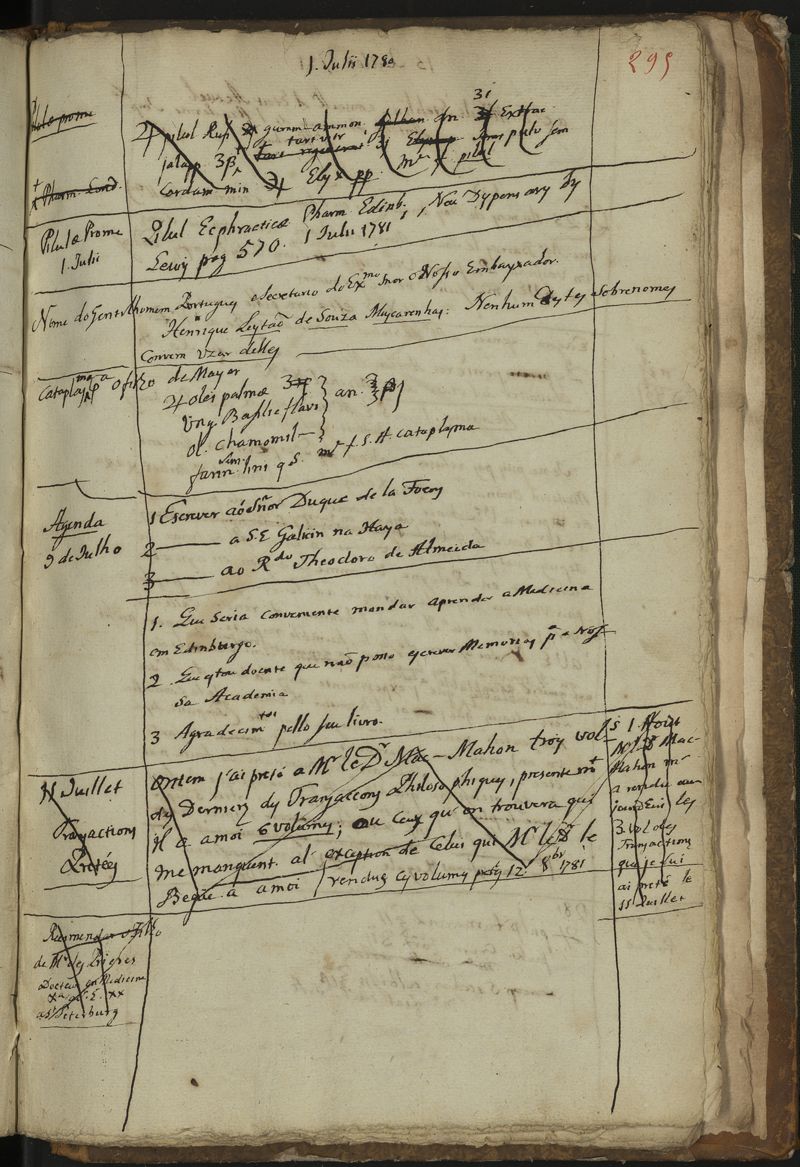 1. Julii 178
295
Pilulæ prome
pilul Rufi gumm ammon. an. Ʒi Extrac
jalapp Ʒβ tart vitr pulv sem
Pharm. Lond.
Cordam min Elyx pp. pilul
Pilulæ Prome
1. Julii
Pilul Ecphracticæ Pharm Edinb. , New Dyspensary by
Lewis pag 570. 1 Julii 1781
Nome do Gentilhomem Portugues, e Secretario do Exmo Snor e Nosso Embayxador.
Henrique Leytaõ de Souza Mascarenhas: Nenhum destes sobrenomes
Convem uzar delles
Cataplasma pa o filho de Mayer
olei palmæ
Ung. Basilic flavi } an.
ol. Chamomil
farin sem lini q S. f. S. A cataplasma
Agenda
9 de Julho
1 Escrever aó Sñor Duque de la Foens
2 ——— a S. E Galizin na Haya
3 ——— ao Rdo Theodoro de Almeida
1. Que seria conveniente mandar aprender a Medicina
em Edinburgo.
2 Que estou doente que naõ posso escrever Memorias pa a Nos
sa Academia
3 Agradecimtos pello seu livro.
11 Juillet
Transactions
Pretées
j'ai preté a Mr. le Dr. Mac-Mahon trois vol
des Derniers des Transactions Philosophiques, presentemt
il a a moi 6 volumes; ou ceux qu'on trouvera qui
me manquent. al exception de Celui qui Mr le Dr le
Begue a amoi / rendus ces volumes 12. 8br 1781
Mr le Dr Mac-
Mahon m'
a rendu
les
3 vol des
Transactions
que je lui
ai preté le
11 Juillet
Recomendar o filho
de Mr des Prieres
Docteur en Medicine
a St Peterburg